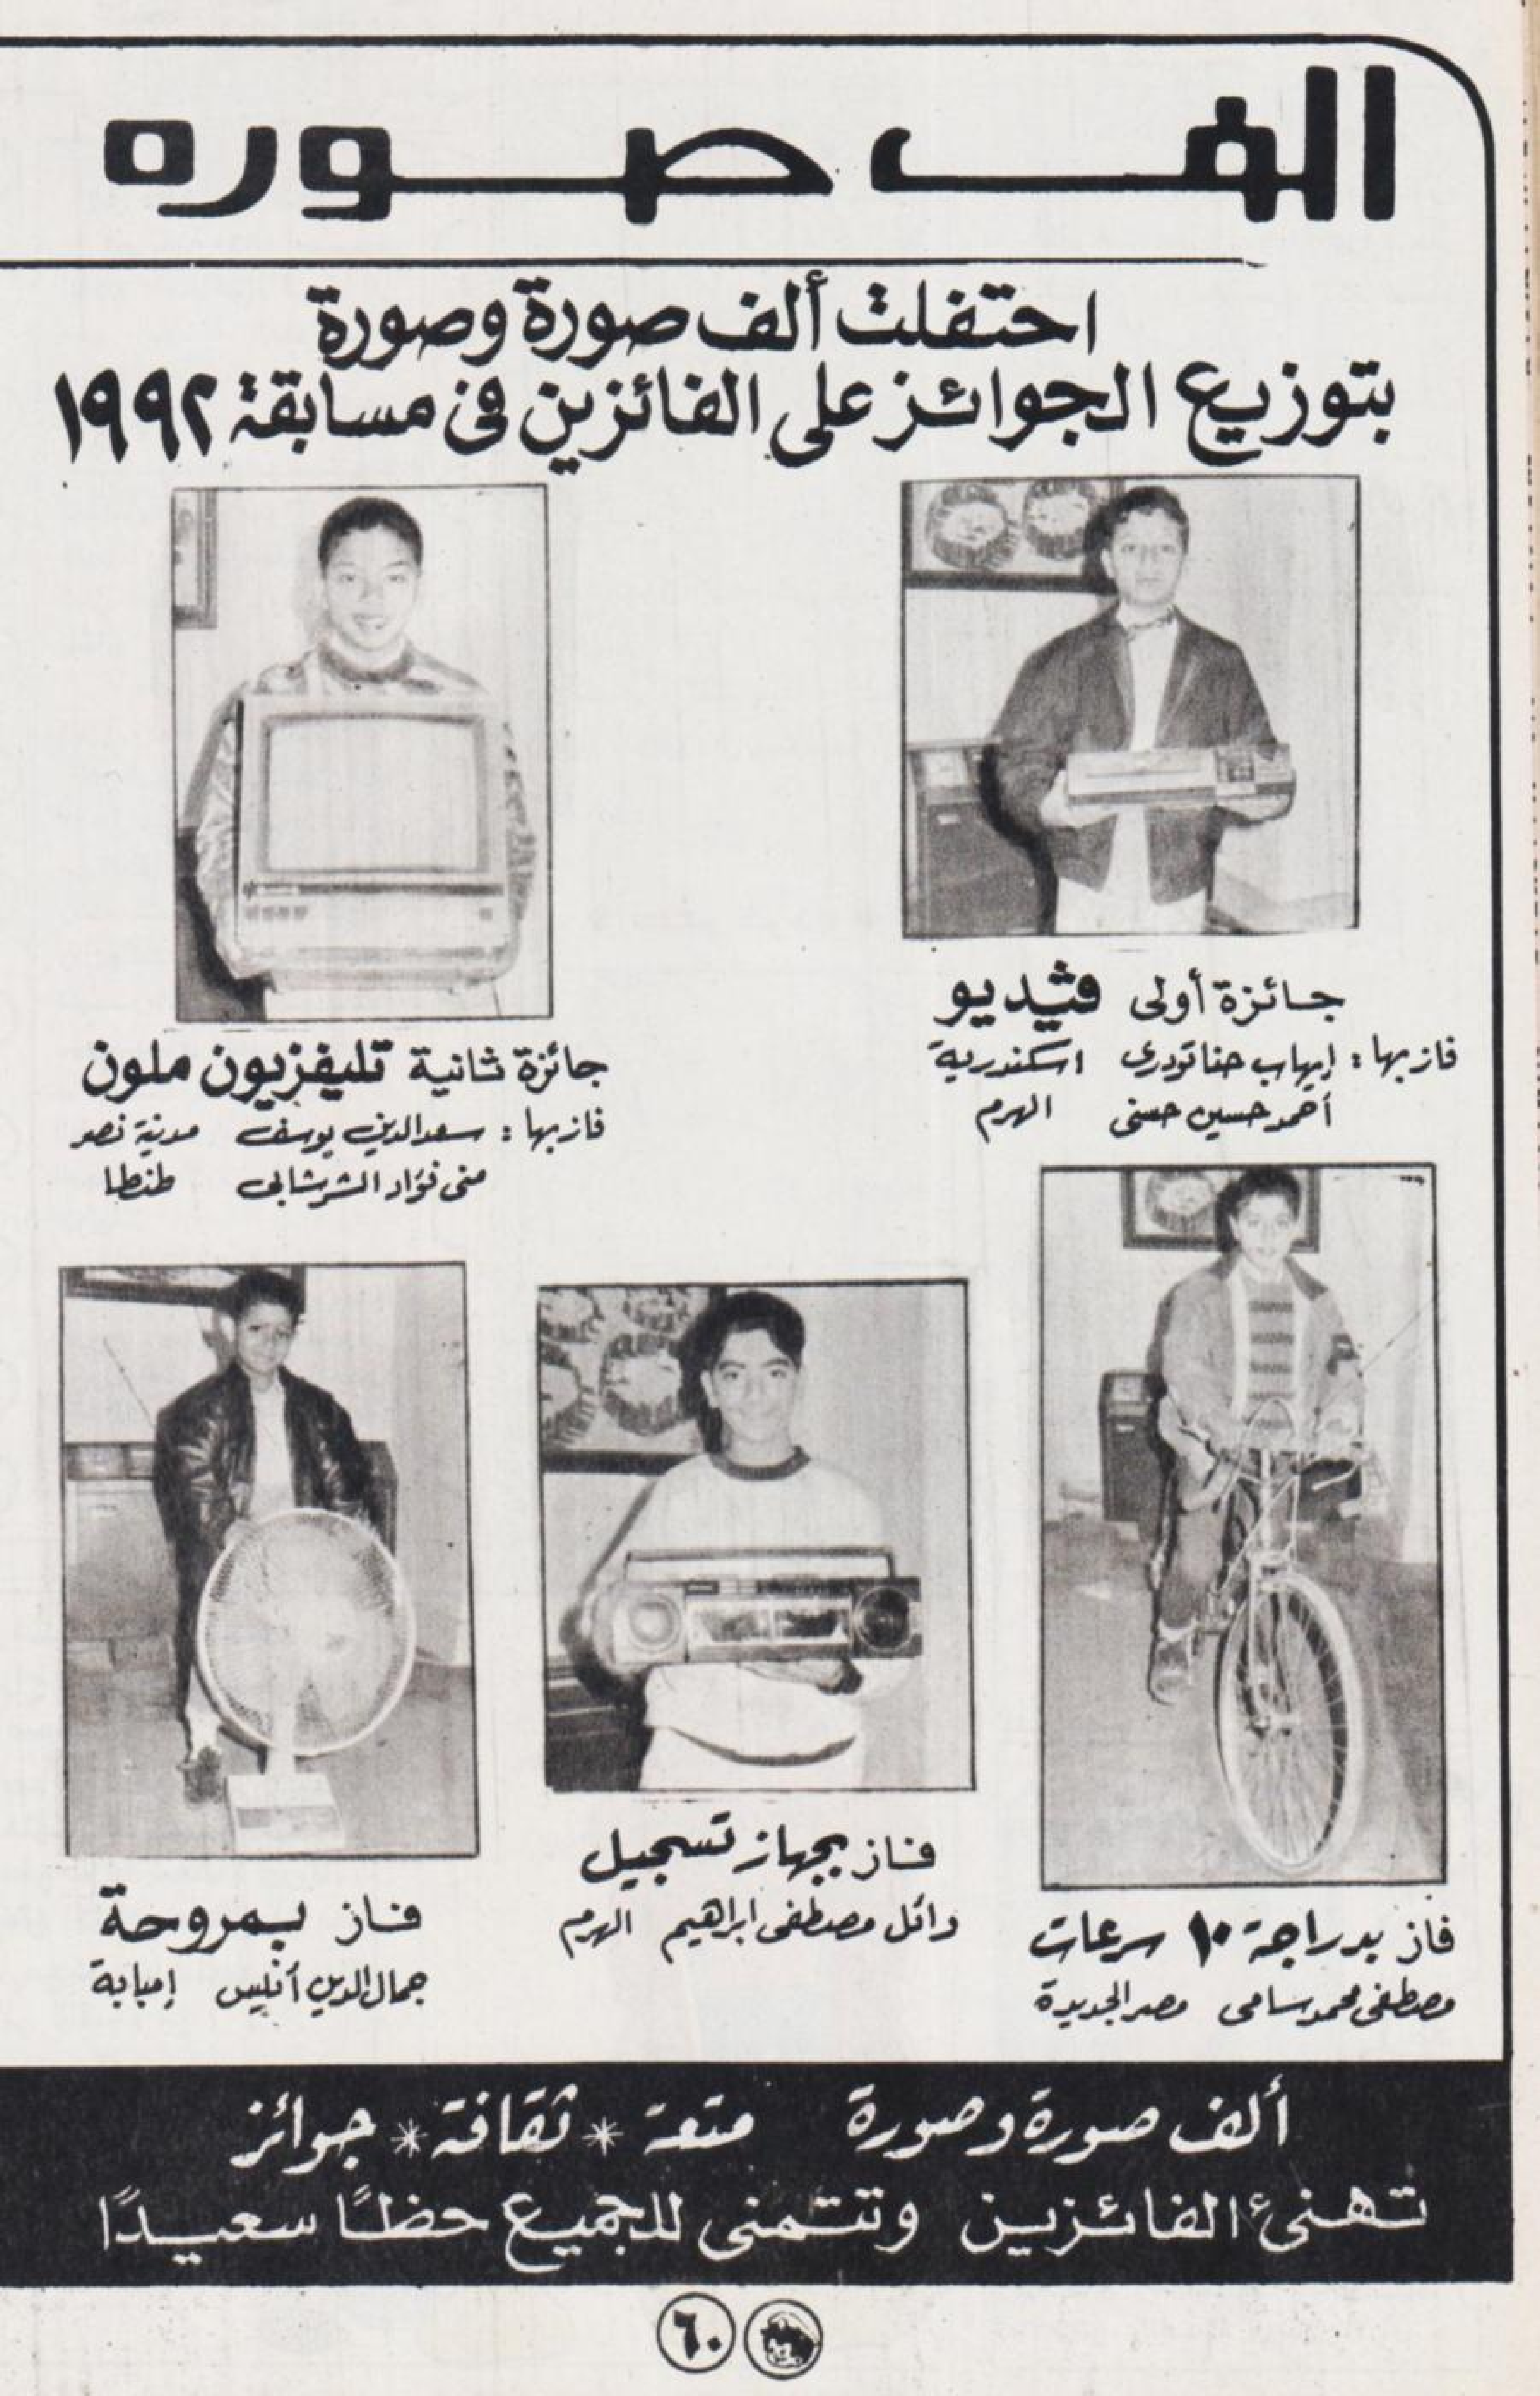 الف صوره
احتفلت ألف صورة وصورة
بتوزيع الجوائز على الفائزين في مسابقة ١٩٩٢
جائزة أولى فيديو
فاز بها : إيهاب حنا تودرى اسكندرية
أحمد حسين حسنى الهرم
جائزة ثانية تليفزيون ملون
فاز بها : سعد الدين يوسف مدينة نصر
منى فؤاد الشرشابى طنطا
فاز بدراجة ١٠ سرعات
مصطفى محمد سامى مصر الجديدة
فاز بجهاز تسجيل
وائل مصطفى ابراهيم الهرم
فاز بمروحة
جمال الدين أنيس إمبابة
ألف صورة وصورة متعة * ثقافة * جوائز
تهنئ الفائزين وتتمنى للجميع حظًا سعيدًا
٦٠